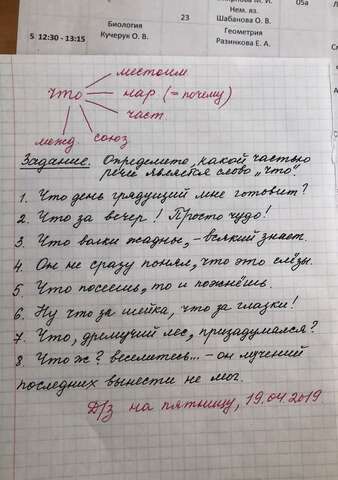 Смирнов М. И.
05а
Нем. яз.
23
Шабанова О. В.
Биология
Геометрия
5. 12:30 - 13:15
Кучерук О. В.
Разинкова Е. А.
местоим
что
нар (= почему)
част
межд
союз
Задание. Определите, какой частью
речи является слово „что".
1. Что день грядущий мне готовит?
2. Что за вечер! Просто чудо!
3. Что волки жадны, - всякий знает.
4. Он не сразу понял, что это слёзы.
5. Что посеешь, то и пожнёшь.
6. Ну что за шейка, что за глазки!
7. Что, дремучий лес, призадумался?
8. Что ж? веселитесь... - он мучений
последних вынести не мог.
Д/з на пятницу, 19.04.2019